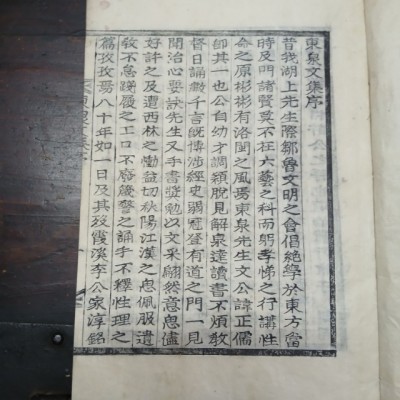 東泉文集序
昔我湖上先生際鄒魯文明之會倡絶學於東方當
時及門諸賢莫不在六藝之科而躬孝悌之行講性
命之原彬彬有洛閩之風焉東泉先生文公諱正儒
卽其一也公自幼才調穎脫見解泉達讀書不煩敎
督日誦數千言旣博涉經史弱冠登有道之門一見
聞治心要訣先生又手書奬勉以文采翩然意思儘
好許之及遭西林之慟益切秋陽江漢之思佩服遺
敎不怠蹊履之工口不廢箴警之誦手不釋性理之
篇孜孜焉八十年如一日及其歿霞溪李公家淳銘